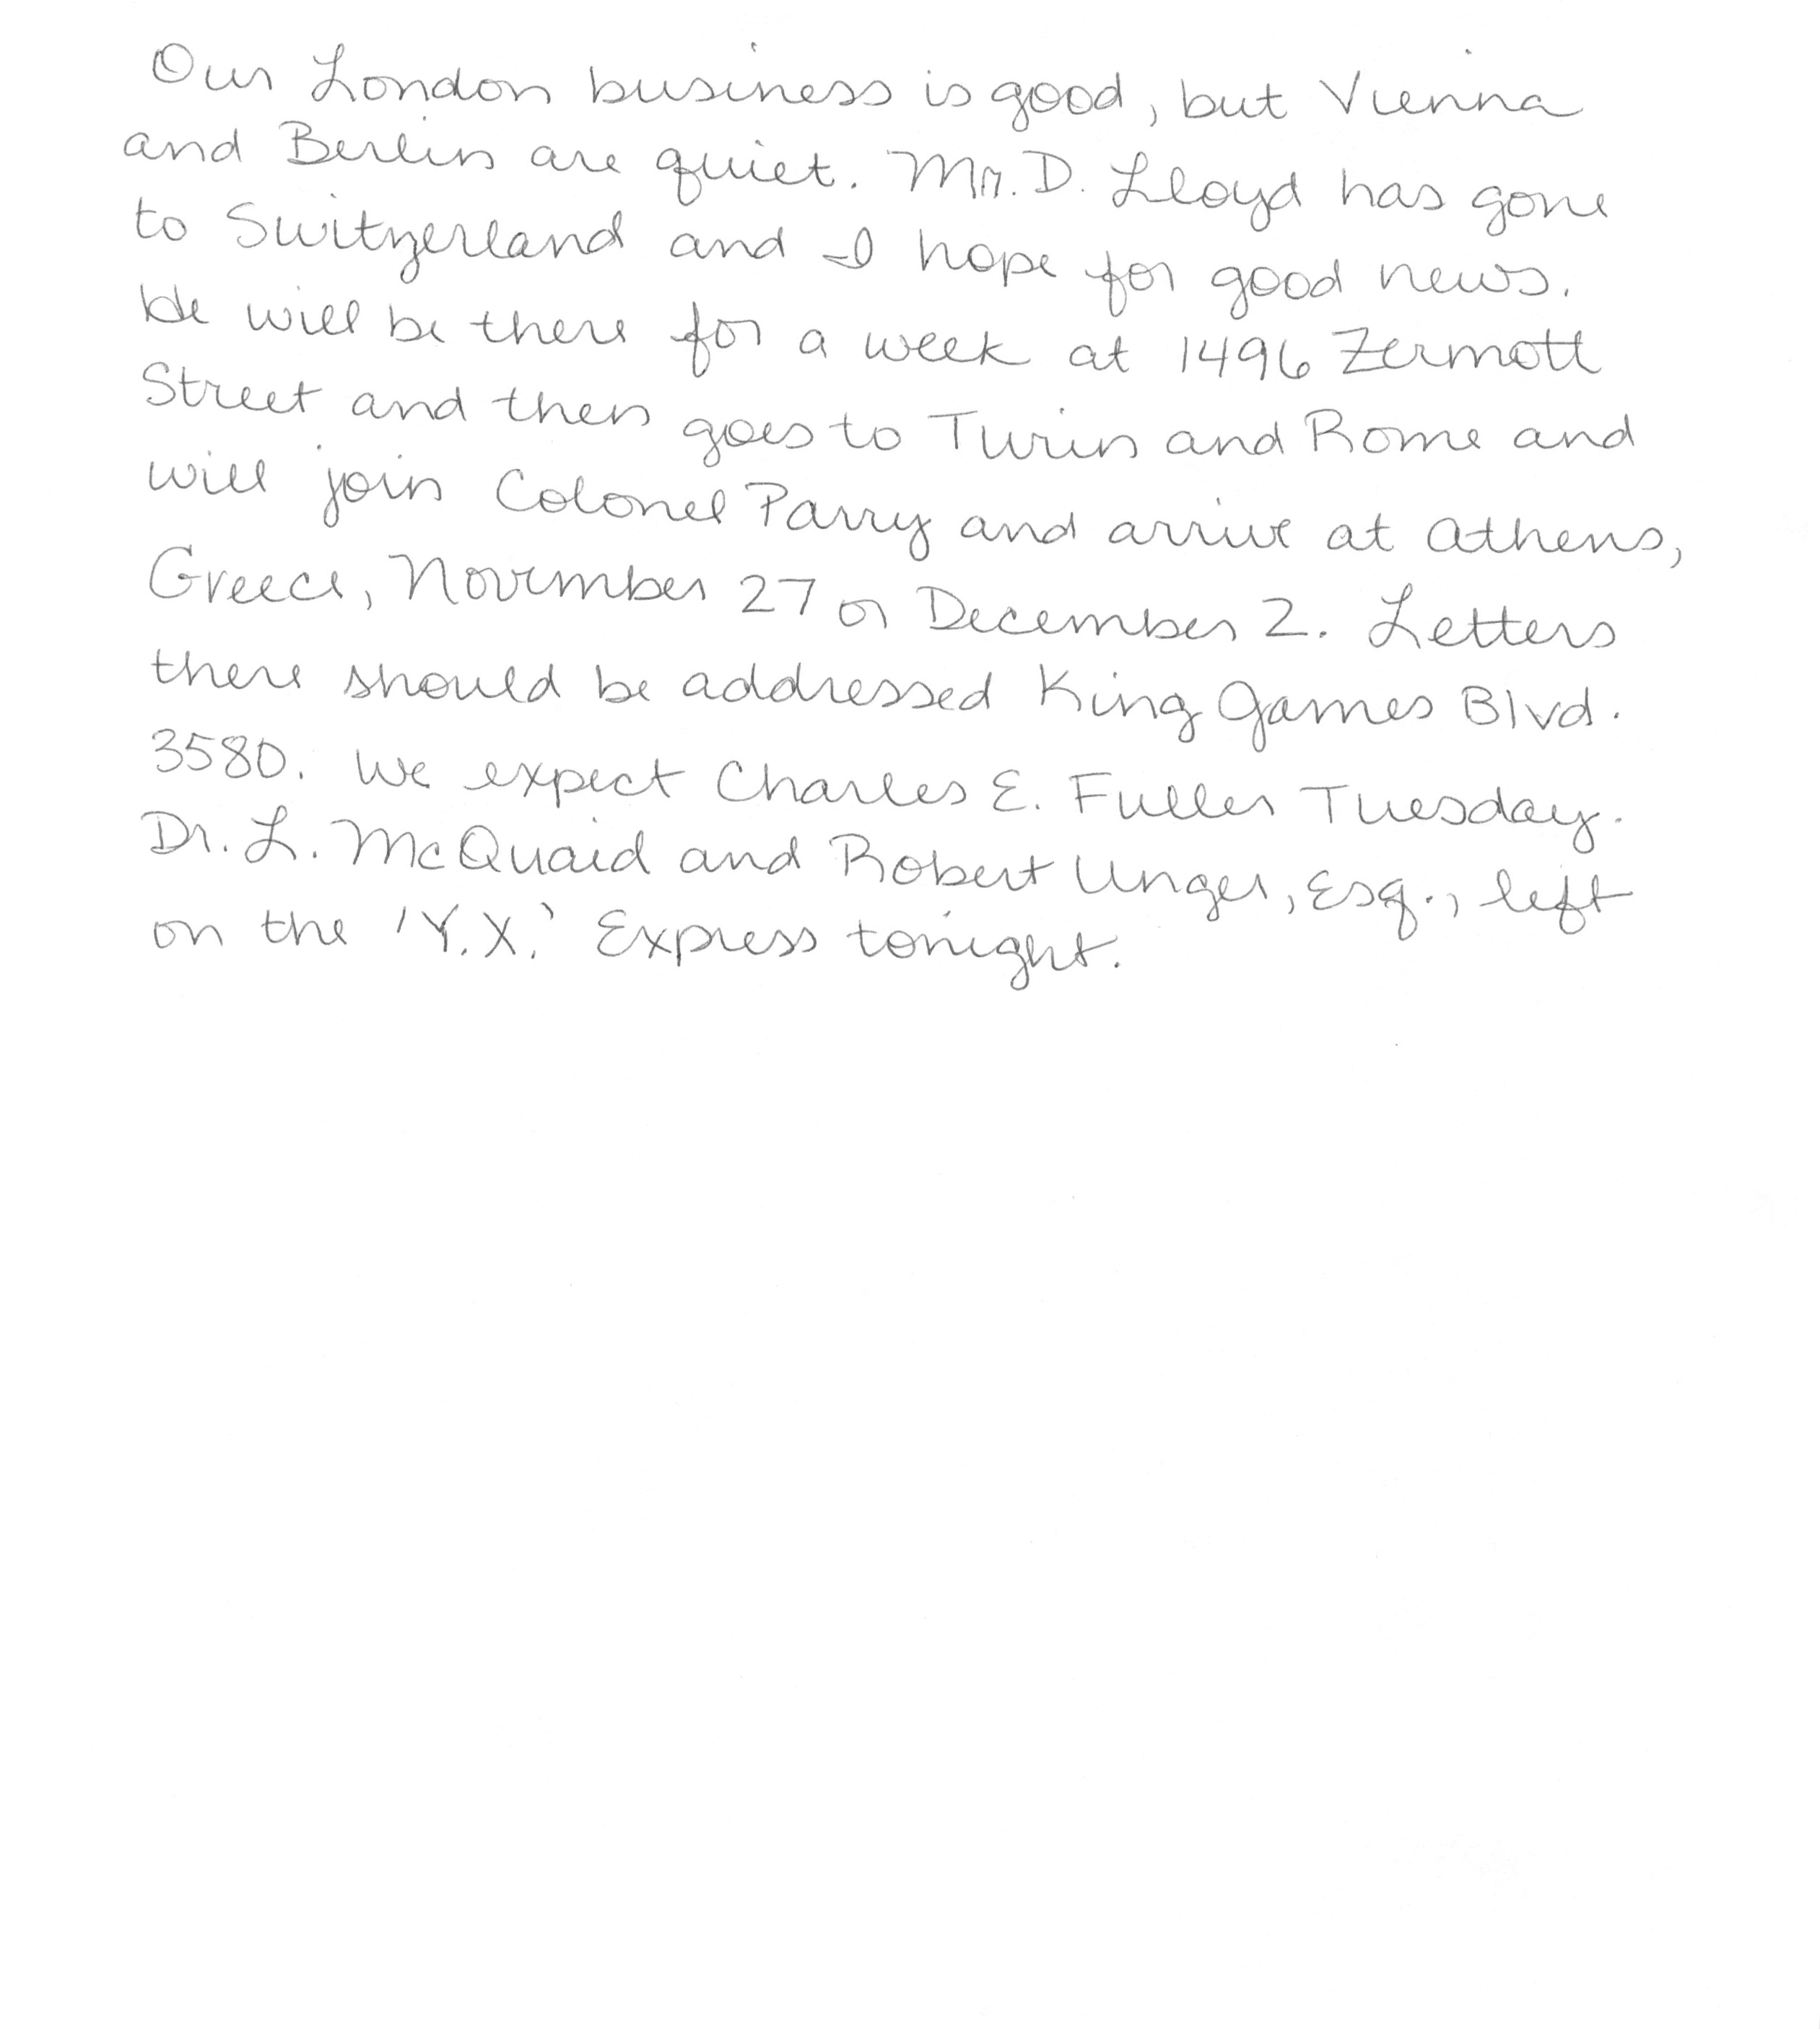 Our London business is good, but Vienna
and Berlin are quiet. Mr. D. Lloyd has gone
to Switzerland and I hope for good news.
He will be there for a week at 1496 Zermott
Street and then goes to Turin and Rome and
will join Colonel Parry and arrive at Athens,
Greece, November 27 or December 2. Letters
there should be addressed King James Blvd.
3580. We expect Charles E. Fuller Tuesday.
Dr. L. McQuaid and Robert Unger, Esq., left
on the 'Y.X.' Express tonight.